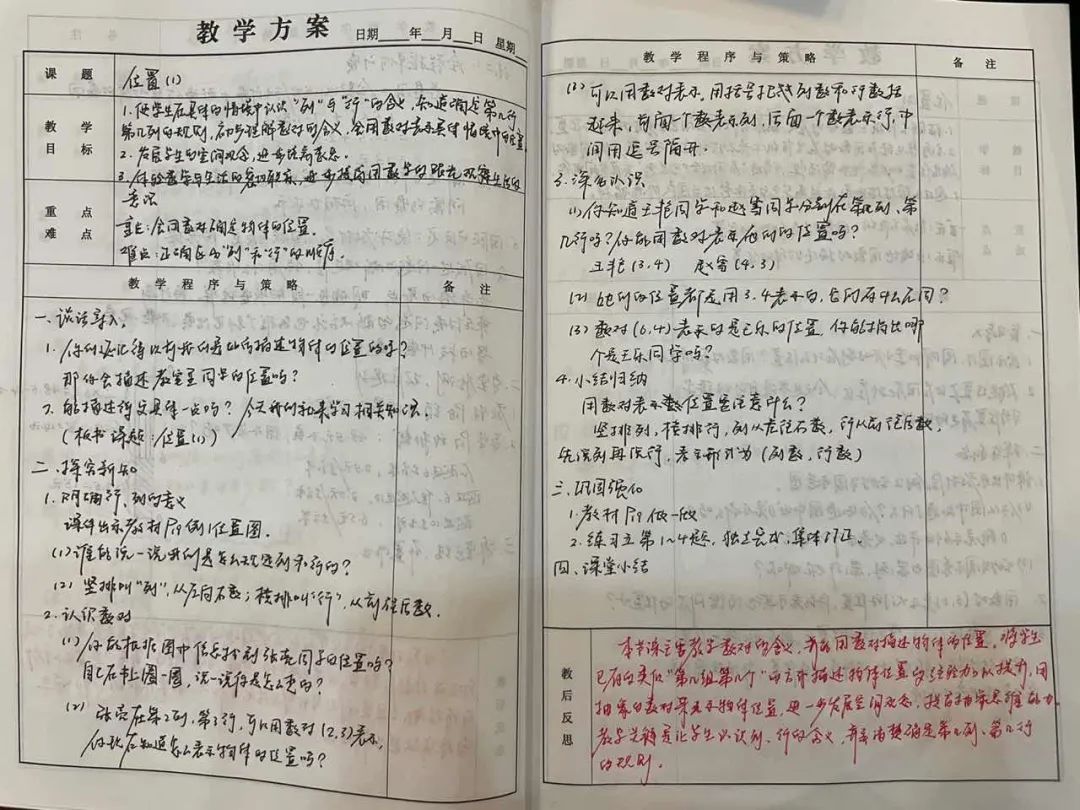 教学方案 日期 年 月 日 星期
课题 位置(1)
教学目标 1.使学生在具体的情境中认识"列"与"行"的含义,知道确定第几行
第几列的规则,初步理解数对的含义,会用数对表示具体情境中的位置
2.发展学生的空间观念,进一步提高
3.体验数学与生活的密切联系,进一步提高用数学的眼光观察生活的
意识
重点难点 重点:会用数对确定物体的位置.
难点:正确区分"列"和"行"的顺序.
教学程序与策略 备注
一、谈话导入.
1.你们还记得以前我们是如何描述物体的位置的呀?
那你会描述教室里同学的位置吗?
2.能描述得更具体一点吗?今天我们和来学习相关知识.
(板书课题:位置(1))
二、探究新知
1.明确行、列的意义
课件出示教材P19例1位置图.
(1)谁能说一说我们是怎么规定列和行的?
(2)竖排叫"列",从左向右数;横排叫"行",从前往后数.
2.认识数对
(1)你能根据图中信息找到张亮同学的位置吗?
自己在书上圈一圈,说一说你是怎么想的?
(2)张亮在第2列,第3行,可以用数对(2,3)表示,
你现在知道怎么表示物体的位置吗?
教学程序与策略 备注
(3)可以用数对表示.用括号把列数和行数括
起来,前面一个数表示列,后面一个数表示行,中
间用逗号隔开.
3.深色认识
(1)你知道王艳同学和赵雪同学分别在第几列、第
几行吗?你能用数对表示他们的位置吗?
王艳(3,4) 赵雪(4,3)
(2)她们的位置都是用3.4表示的,它们有什么不同?
(3)数对(6,4)表示的是王乐的位置,你能指出哪
个是王乐同学吗?
4.小结归纳
用数对表示数位置要注意什么?
竖排列,横排行,列从左往右数,行从前往后数,
先说列再说行,表示形式为(列数,行数)
三、巩固强化
1.教材P19做一做
2.练习五第1~4题,独立完成,集体订正.
四、课堂小结
教后反思 本节课主要教学数对的含义,并能用数对描述物体的位置.将学生
已有的类似"第几组第几个"的方式描述物体位置的经验加以提升,用
抽象的数对来表示物体位置,进一步发展空间观念,提高抽象思维能力
教学关键是让学生认识列、行的含义,并弄清楚确定第几列、第几行
的规则.